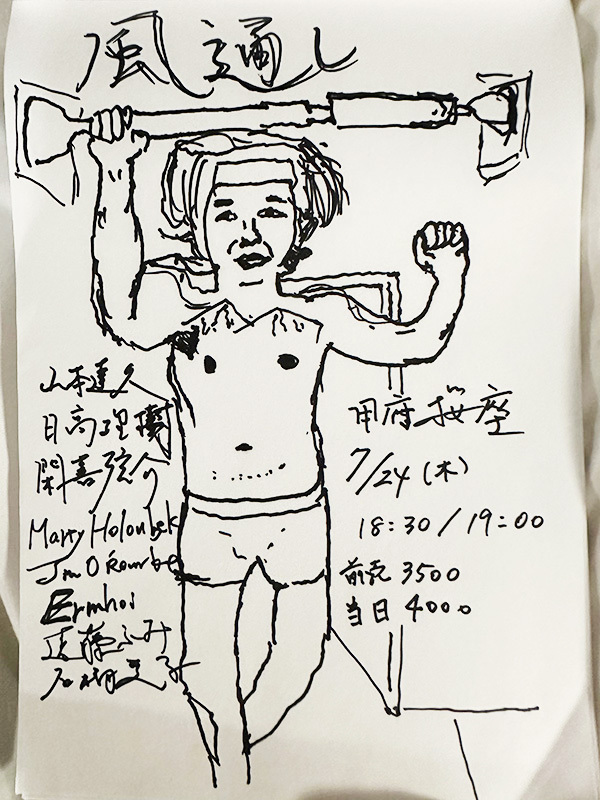 風通し
山本達久
日高理樹
閑喜弦介
Marty Holoubek
Jim O'Rourke
Ermhoi
藤ふみ
石橋
甲府桜座
7/24(木)
18:30/19:00
前売 3500
当日 4000